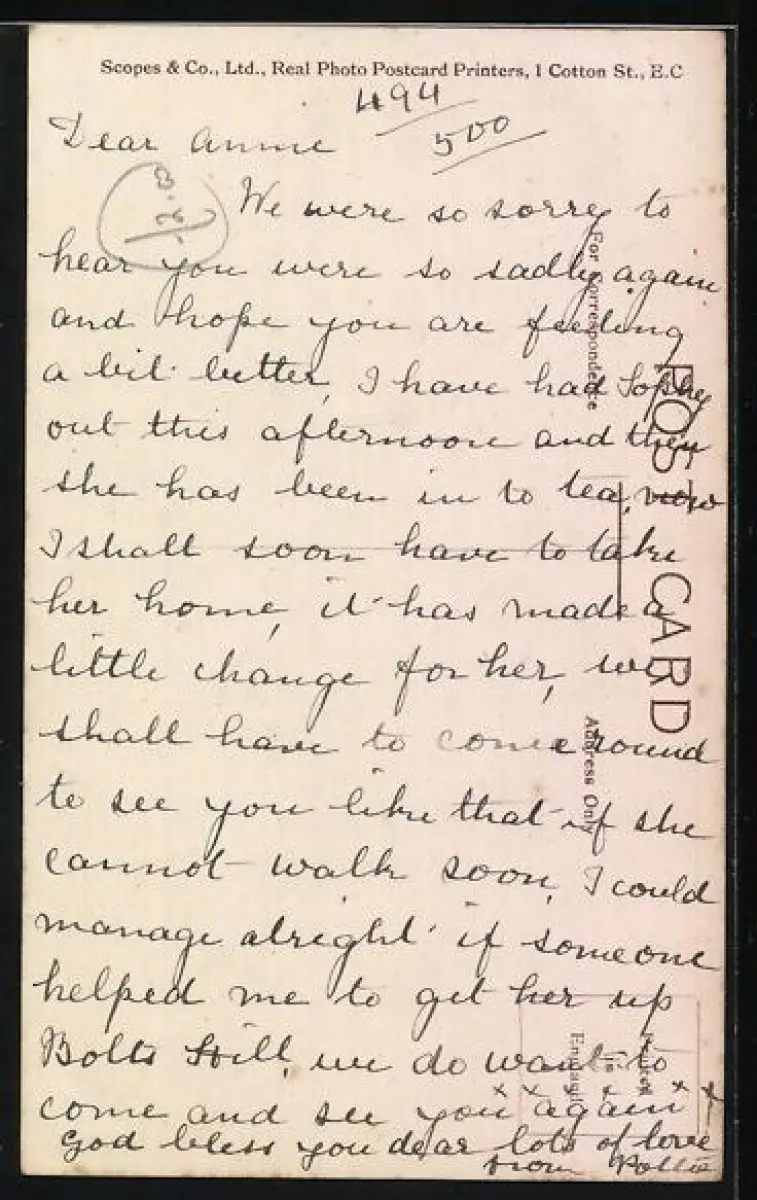 Scopes & Co., Ltd., Real Photo Postcard Printers, 1 Cotton St., E.C
494
500
Dear Annie
We were so sorry to
hear you were so sadly again
and hope you are feeling
a bit better, I have had Sophy
out this afternoon and then
she has been in to tea, now
I shall soon have to take
her home, it has made a
little change for her, we
shall have to come round
to see you like that if she
cannot walk soon, I could
manage alright if someone
helped me to get her up
Bolts Hill, we do want to
come and see you again
x x x x x x x
God bless you dear lots of love
from Pollie
For Correspondence
POST CARD
Address Only
Printed in England